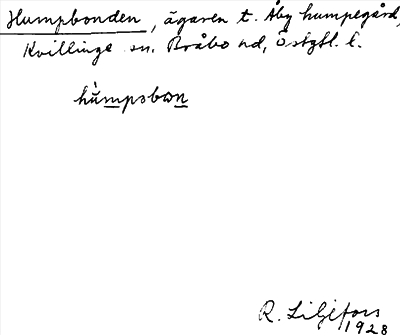 Humpbonden, ägaren t. Åby humpegård,
Kvillinge sn. Bråbo hd, Östgtl. l.
hùmpsbɷn
R. Liljefors
1928